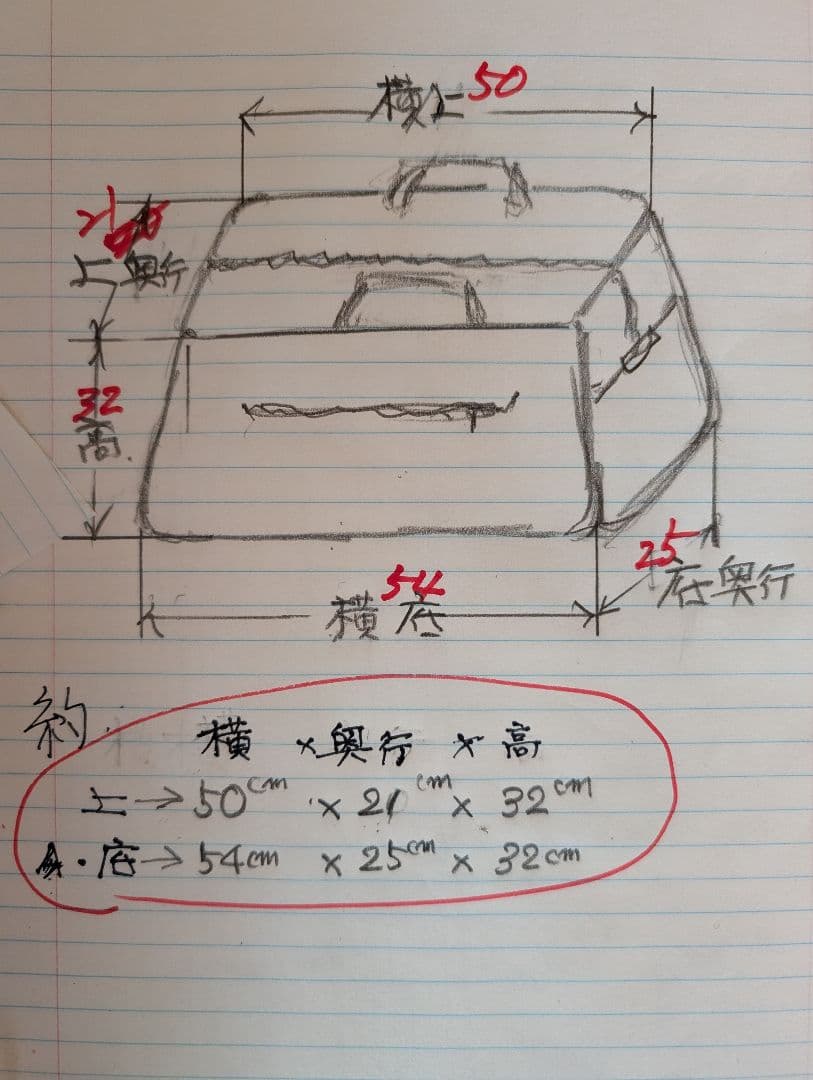 横上 50
21
上奥行
32
高
25
底奥行
54
横底
約
横 × 奥行 × 高
上→50cm × 21cm × 32cm
・底→54cm × 25cm × 32cm